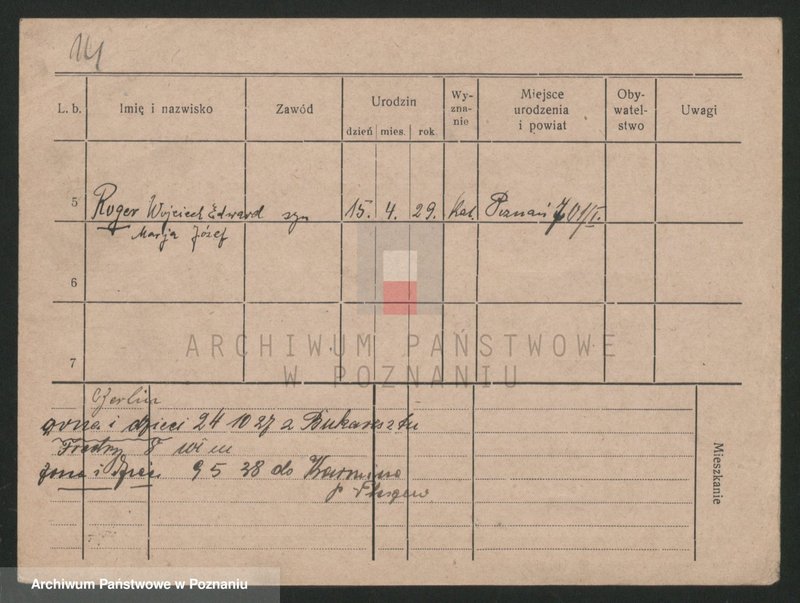 14
L. b. Imię i nazwisko Zawód Urodzin Wy-zna-nie Miejsce urodzenia i powiat Oby-watel-stwo Uwagi
dzień mies. rok
5 Roger Wojciech Edward syn 15. 4. 29. kat. Poznań
Marja Józef
6
7
ARCHIWUM PAŃSTWOWE
W POZNANIU
Berlin
żona i dzieci 24 10 27 z Bukaresztu
Fredry 8
żona i dzieci 9 5 38 do
Mieszkanie
Archiwum Państwowe w Poznaniu